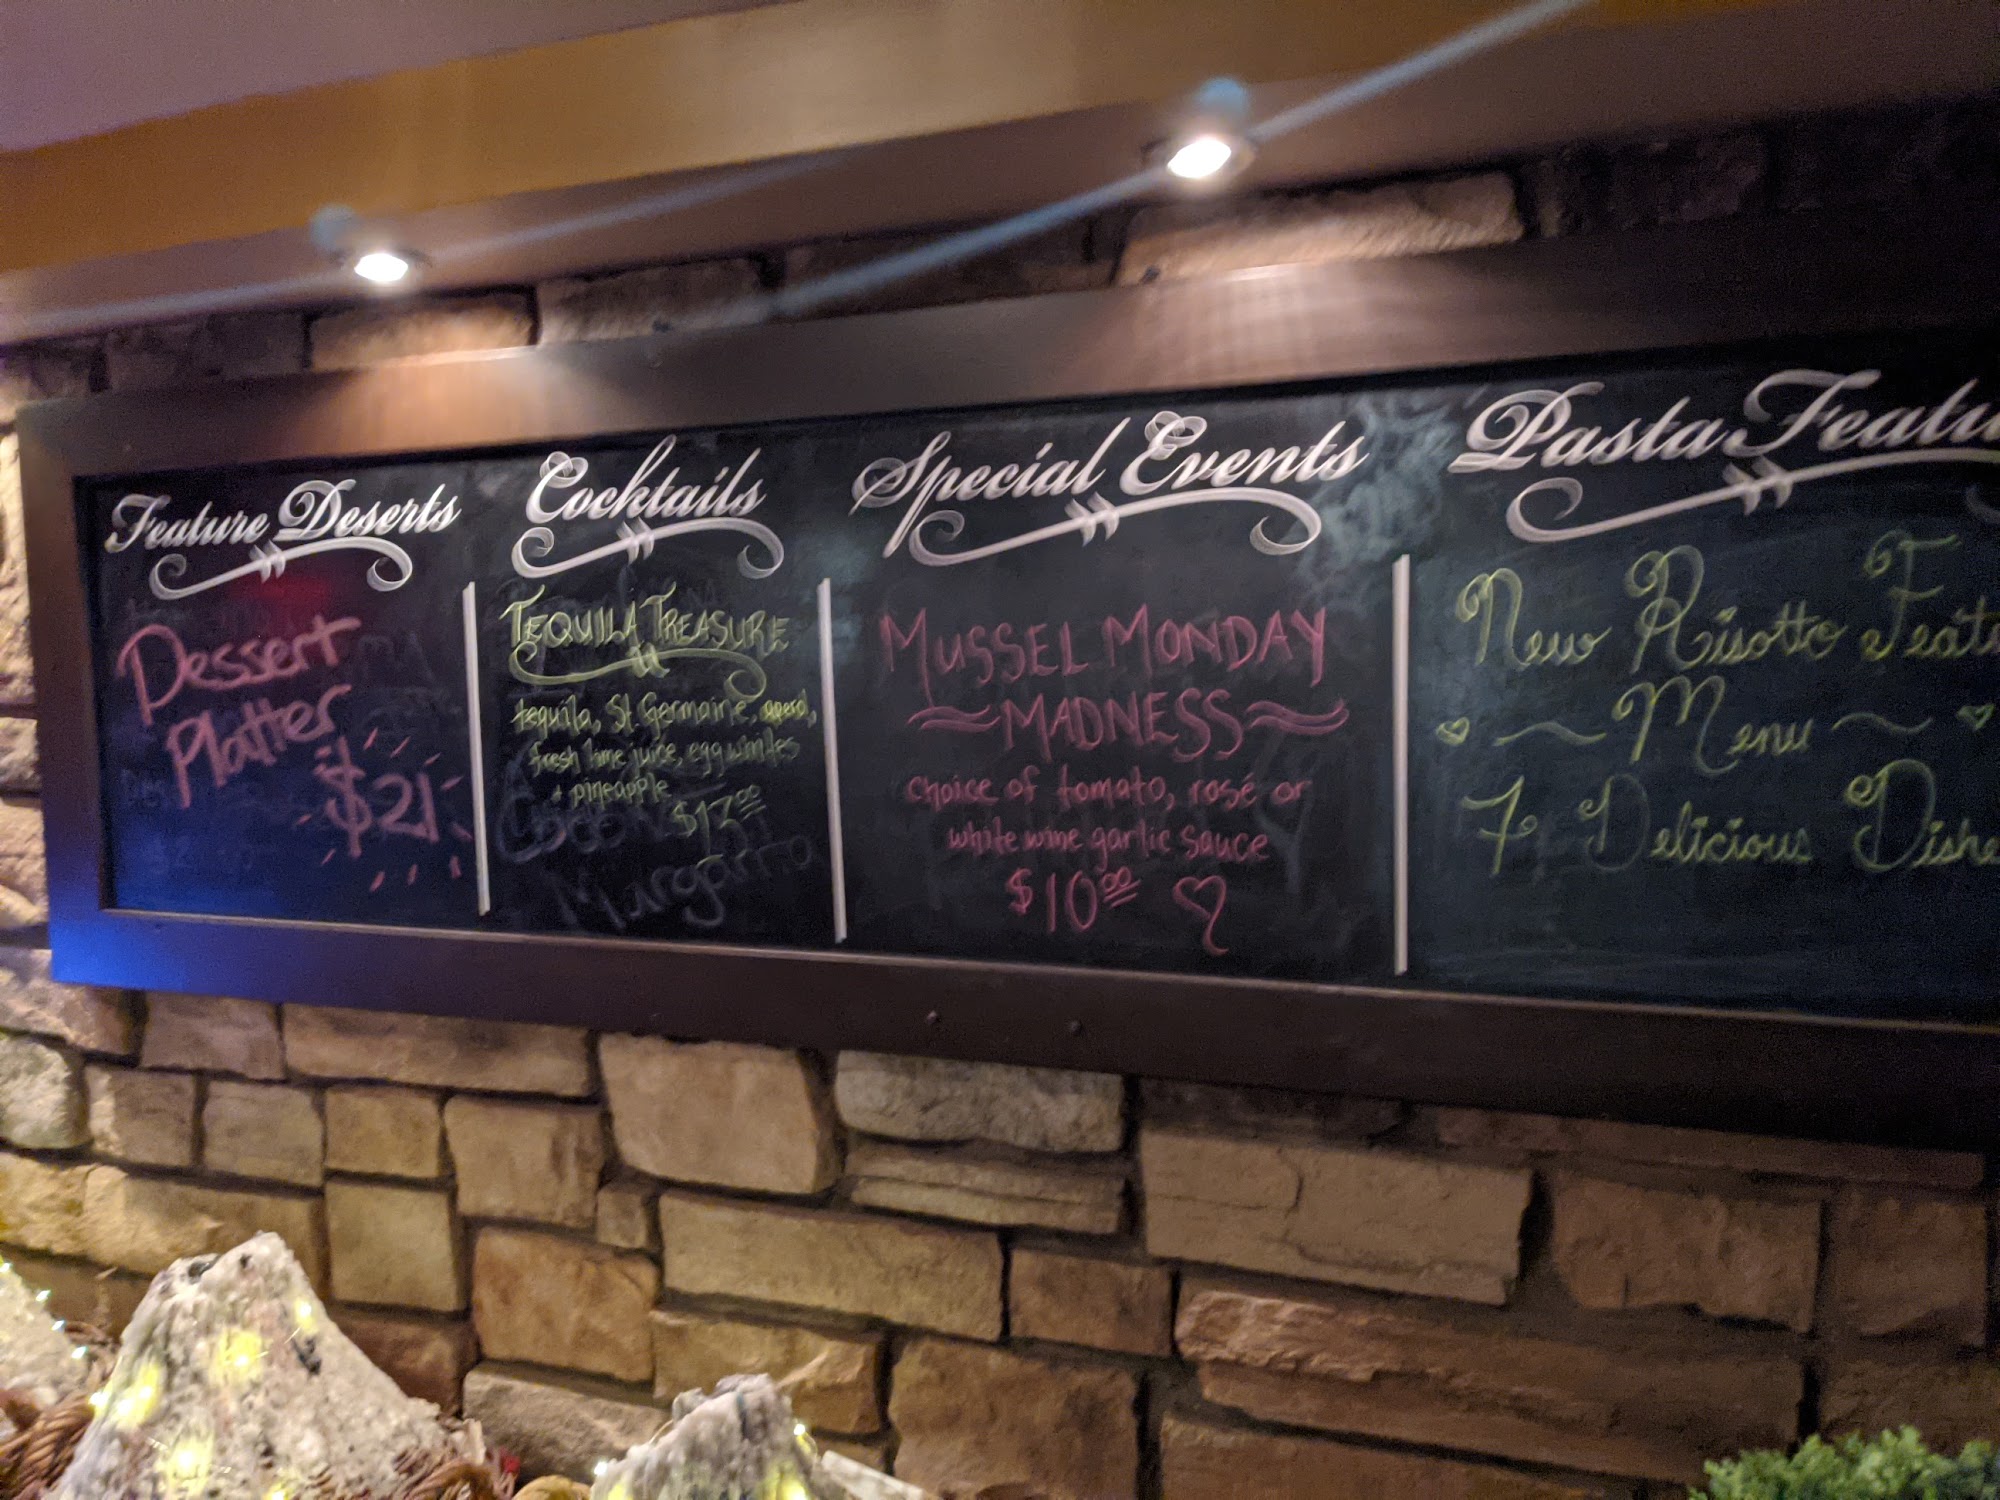 Feature Deserts
Dessert
Platter
$21
Cocktails
TEQUILA TREASURE
tequila, St. Germaine, aperol,
fresh lime juice, egg whites
+ pineapple
$13.00
Margarita
Special Events
MUSSEL MONDAY
~MADNESS~
choice of tomato, rosé or
white wine garlic sauce
$10.00
Pasta Featu
New Risotto Featu
~ Menu ~
7 Delicious Dishe